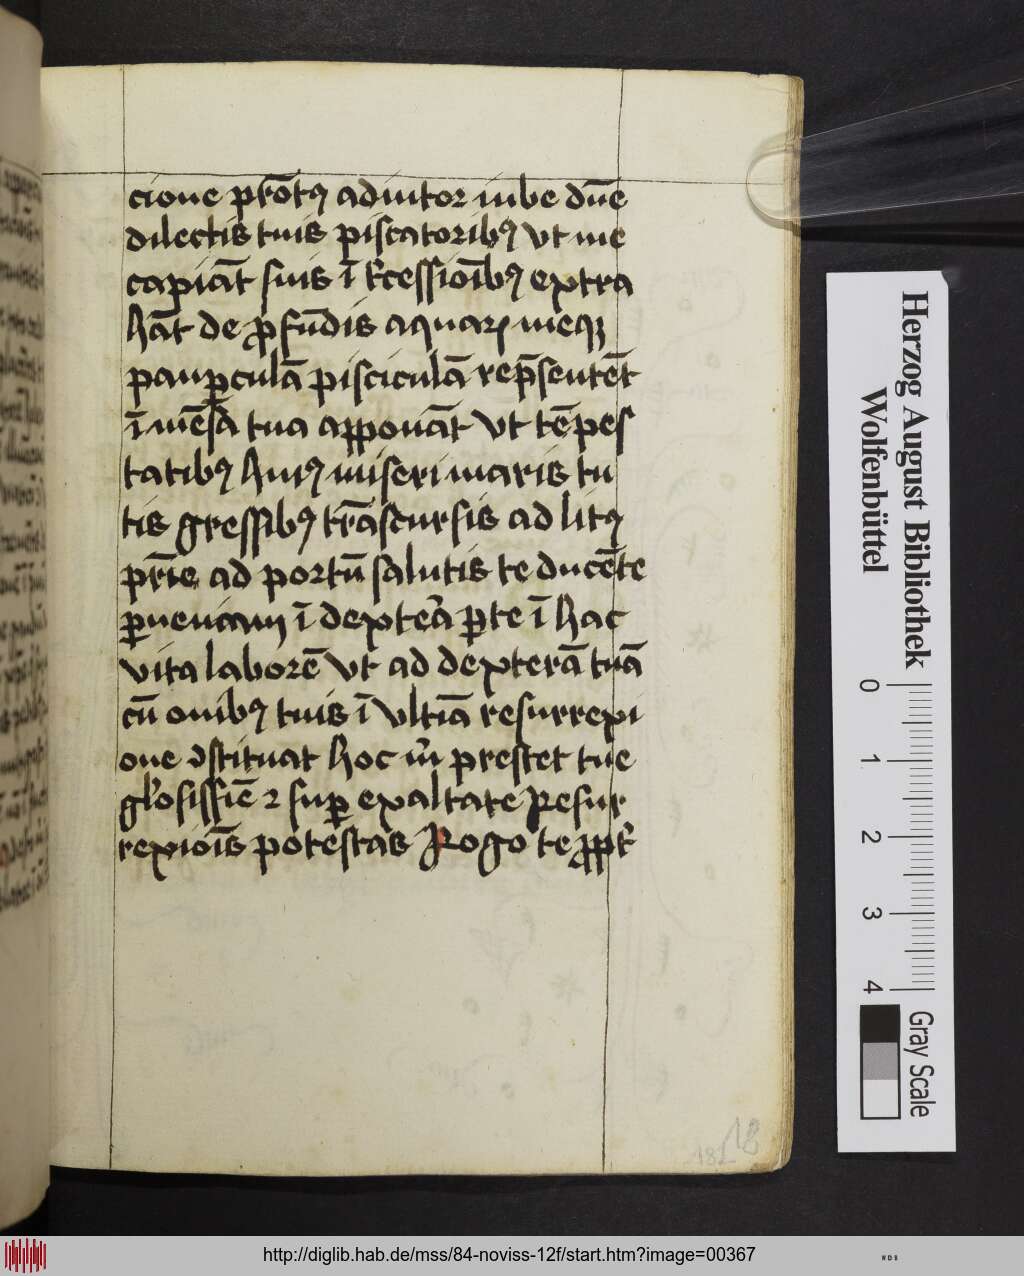 cione p̄rōtꝰ adiutor iube dn̄e
dilectis tuis piscatoribꝰ vt me
capiāt suis ī t̉cessioīb9 extra
hāt de ꝓfūdis aquaꝝ meqꝫ
pauꝑculā pisciculā rep̄sentēt
ī mēsa tua apponāt vt tēpes
tatibꝰ huiꝰ miseri maris tu
tis gressibꝰ trāscursis ad litꝰ
pr̄ie ad portū salutis te ducēte
ꝑueniam ī dextera ꝑte ī hac
vita laborē vt ad dexterā tuā
cū ouibꝰ tuis ī vltīa resurrexi
one ꝯstituat hoc m̄ prestet tue
gl̓osissīe ⁊ suꝑ exaltate Resur
rexiōis potestas Rogo te ꝓpt̉
18
181
Herzog August Bibliothek
Wolfenbüttel
0 1 2 3 4
Gray Scale
http://diglib.hab.de/mss/84-noviss-12f/start.htm?image=00367
WDB